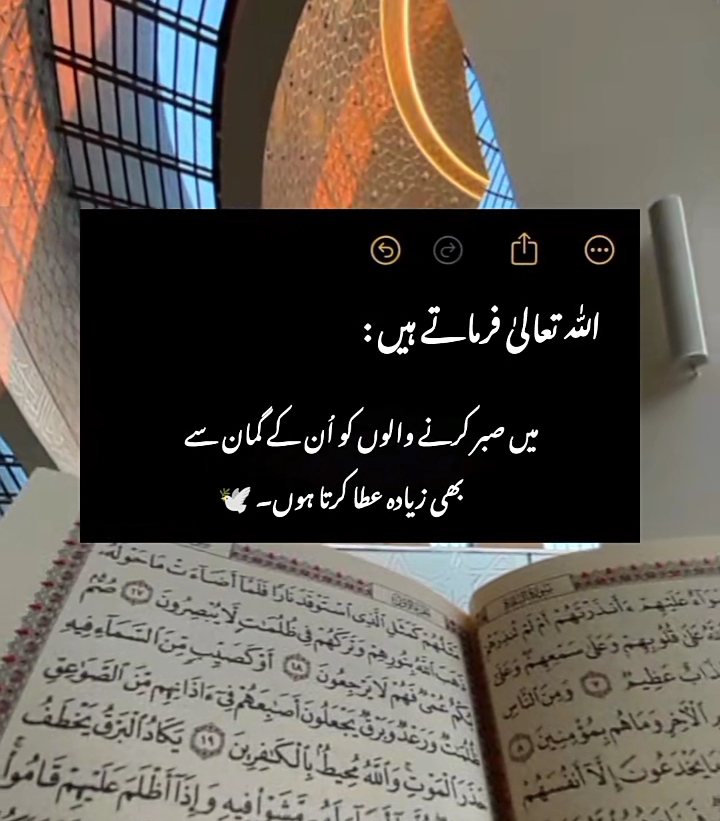 اللہ تعالیٰ فرماتے ہیں :
میں صبر کرنے والوں کو اُن کے گمان سے
بھی زیادہ عطا کرتا ہوں۔ 🕊️
سُورَةُ البَقَرَةِ
ءَأَنذَرْتَهُمْ أَمْ لَمْ
قُلُوبِهِمْ وَعَلَىٰ سَمْعِهِمْ وَعَلَىٰ
عَظِيمٌ ٧ وَمِنَ النَّاسِ
الْآخِرِ وَمَا هُم بِمُؤْمِنِينَ ٨
يَخْدَعُونَ إِلَّا أَنفُسَهُمْ
مَثَلُهُمْ كَمَثَلِ الَّذِي اسْتَوْقَدَ نَارًا فَلَمَّا أَضَاءَتْ مَا حَوْلَهُ
ذَهَبَ اللَّهُ بِنُورِهِمْ وَتَرَكَهُمْ فِي ظُلُمَاتٍ لَّا يُبْصِرُونَ ١٧ صُمٌّ
بُكْمٌ عُمْيٌ فَهُمْ لَا يَرْجِعُونَ ١٨ أَوْ كَصَيِّبٍ مِّنَ السَّمَاءِ فِيهِ
ظُلُمَاتٌ وَرَعْدٌ وَبَرْقٌ يَجْعَلُونَ أَصَابِعَهُمْ فِي ءَاذَانِهِم مِّنَ الصَّوَاعِقِ
حَذَرَ الْمَوْتِ وَاللَّهُ مُحِيطٌ بِالْكَافِرِينَ ١٩ يَكَادُ الْبَرْقُ يَخْطَفُ
مَّشَوْا فِيهِ وَإِذَا أَظْلَمَ عَلَيْهِمْ قَامُوا